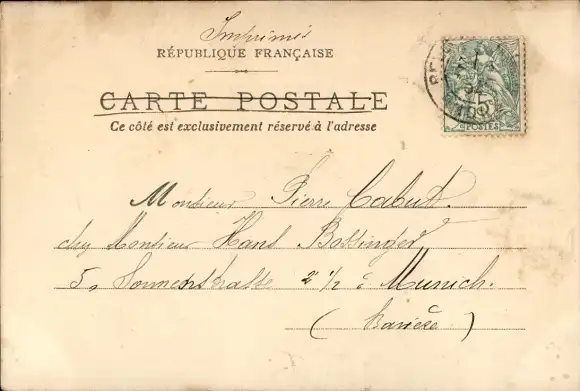 Imprimés
RÉPUBLIQUE FRANÇAISE
CARTE POSTALE
Ce côté est exclusivement réservé à l'adresse
POSTES
Monsieur Pierre Cabut.
chez Monsieur Hans Bossinger
5, Sonnenstrasse 2 1/2 à Munich.
(Bavière)